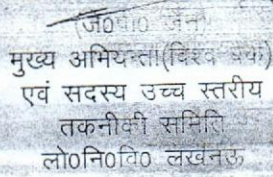 (जे०पी० जैन)
मुख्य अभियन्ता(विश्व बैंक)
एवं सदस्य उच्च स्तरीय
तकनीकी समिति
लो०नि०वि० लखनऊ